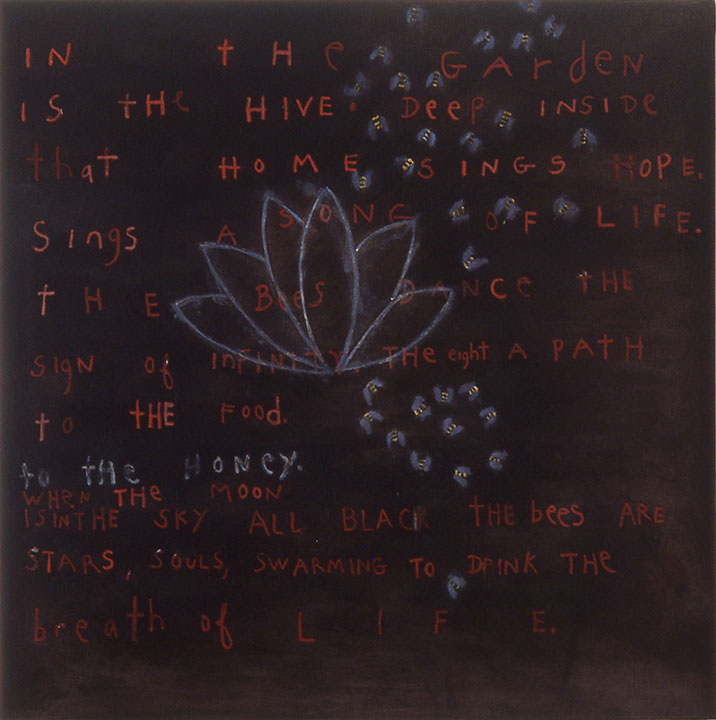 IN tHe GArdeN
IS tHe HIVE. Deep INSIDe
that HOME SINGS HOPE.
Sings A SONG OF LIFE.
tHE Bees DANCe tHE
SIGN of INFINITY, THe eight A PATH
to tHE FOOd.
to tHe HONEY.
WHEN THe MOON
IS IN THE SKY ALL BLACK tHE bees ARE
STARS, SOULS, SWARMING TO DRINK THe
breath of LIFE.